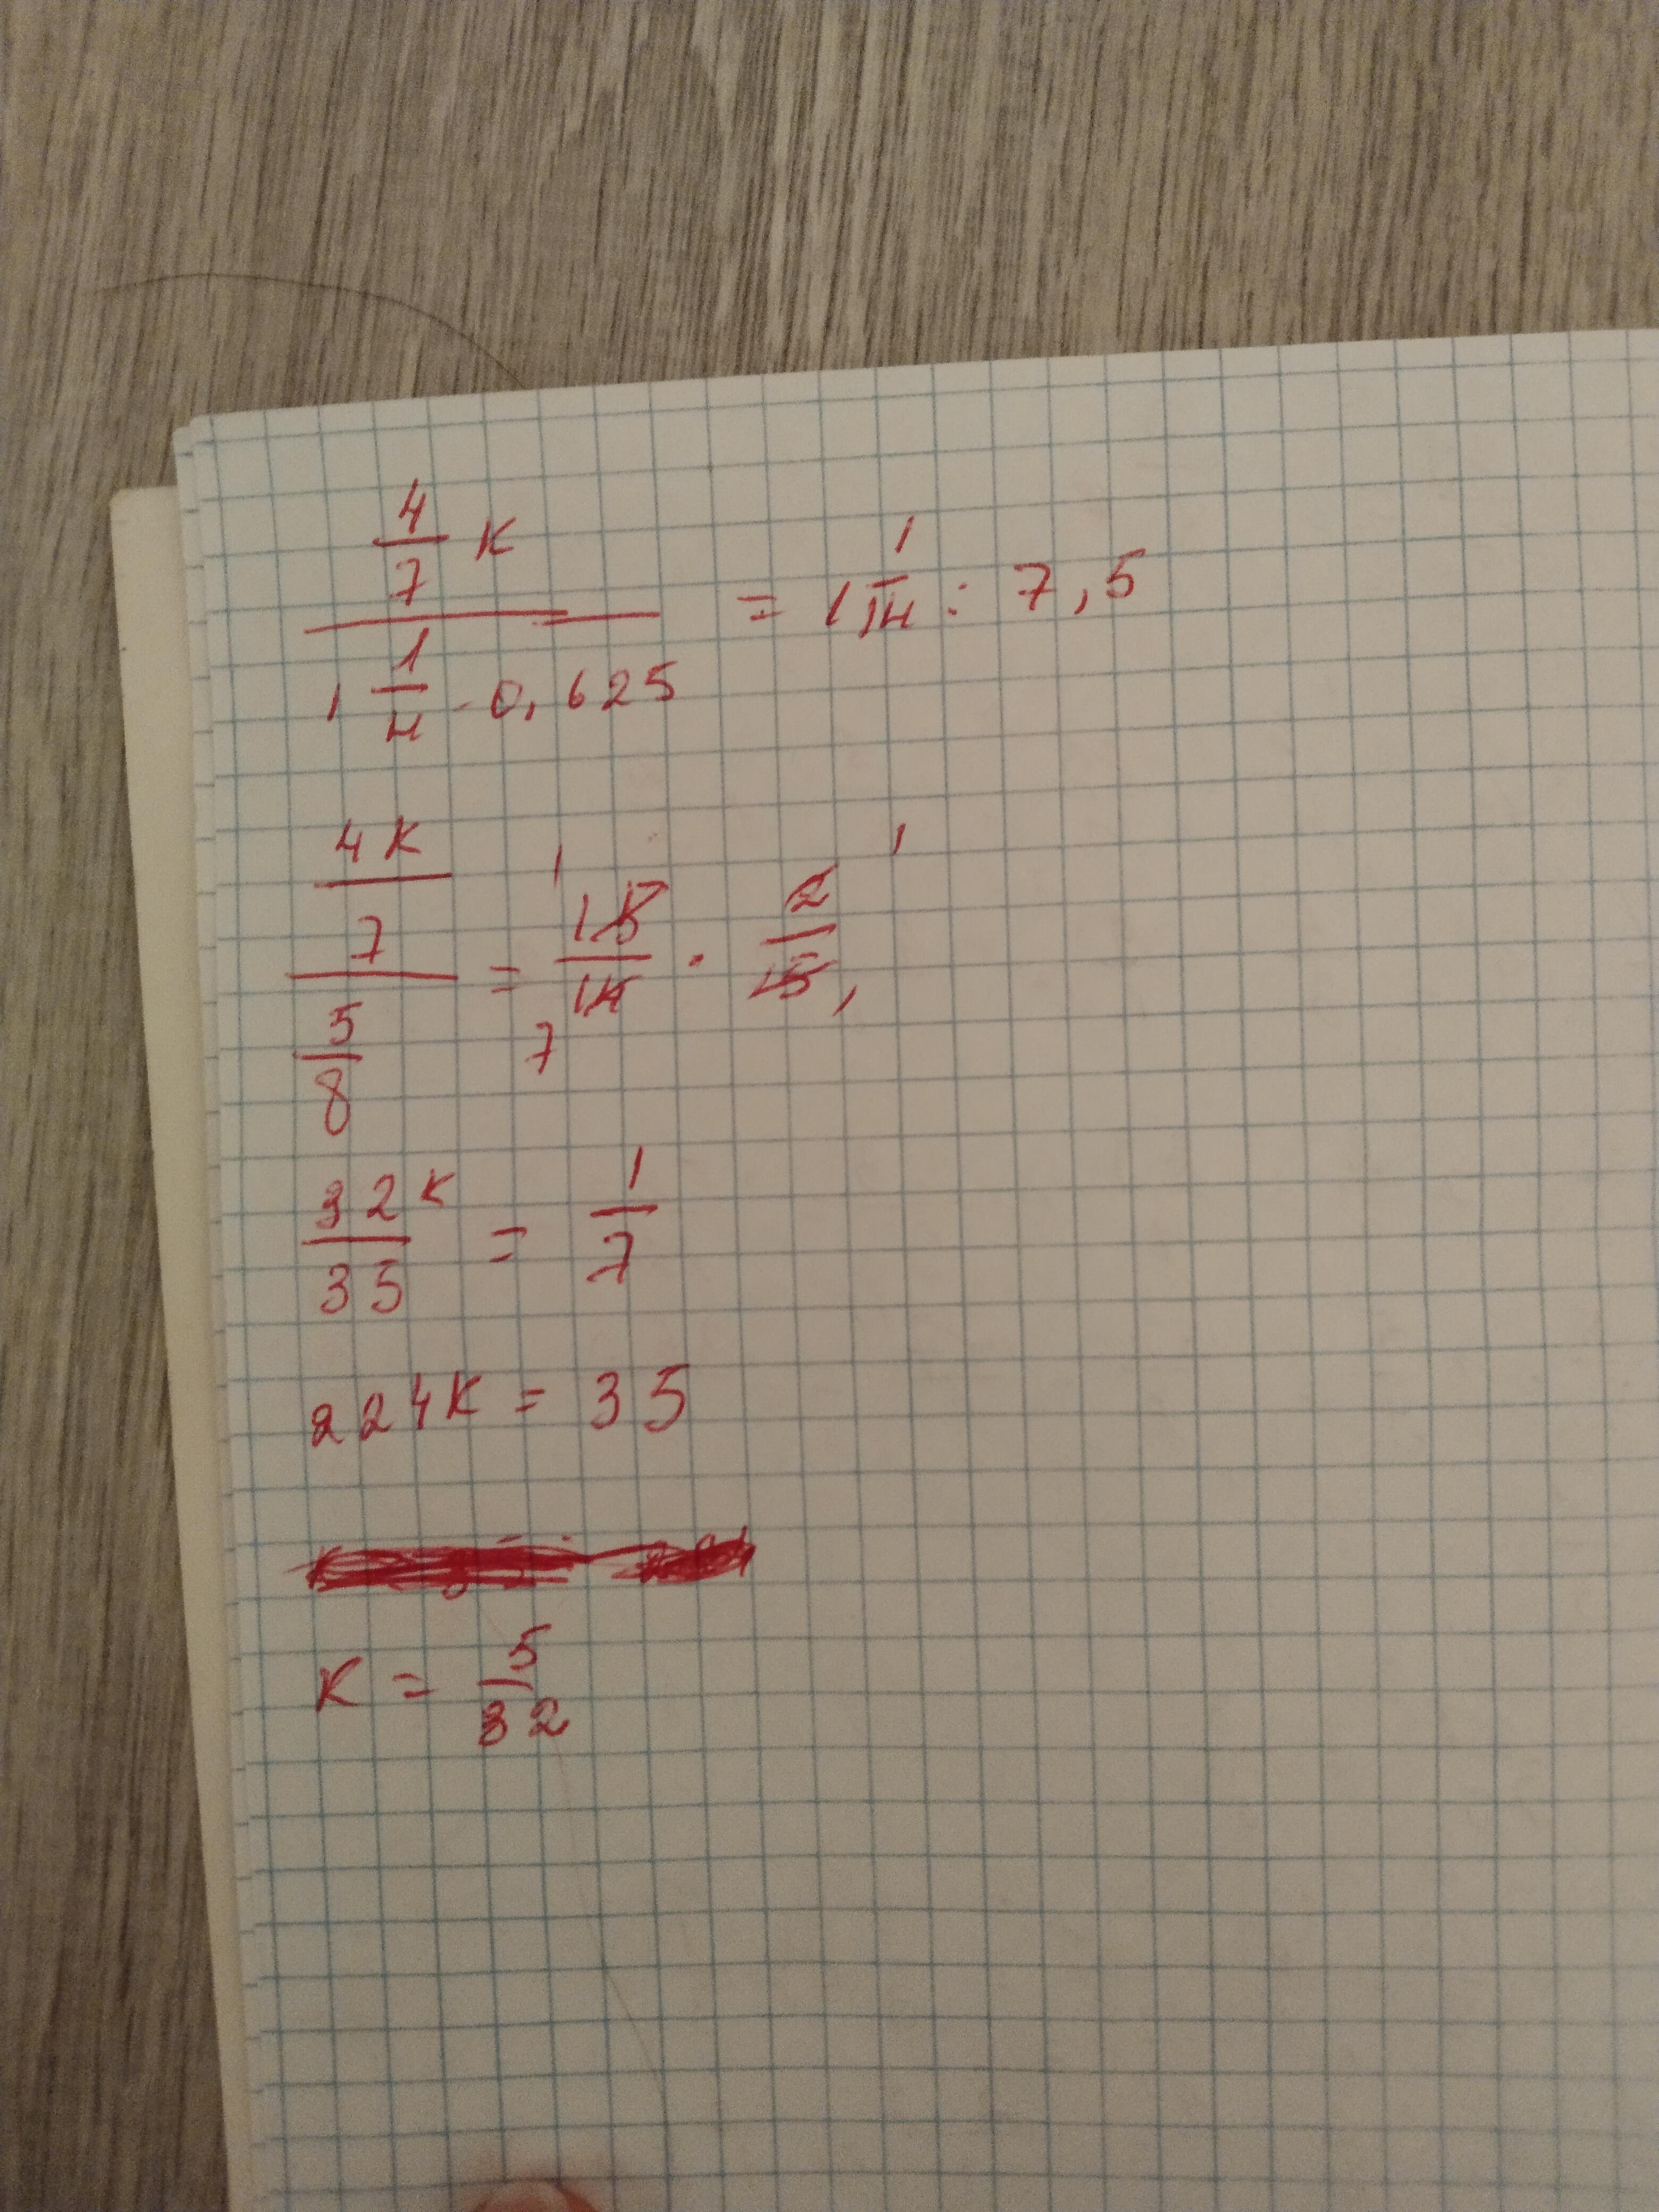 4/7 K / (1 1/4 - 0,625) = 1 1/14 : 7,5
(4K/7) / (5/8) = 15/14 · 2/15 1 7 1 1
32K/35 = 1/7
224K = 35
K = 5/32